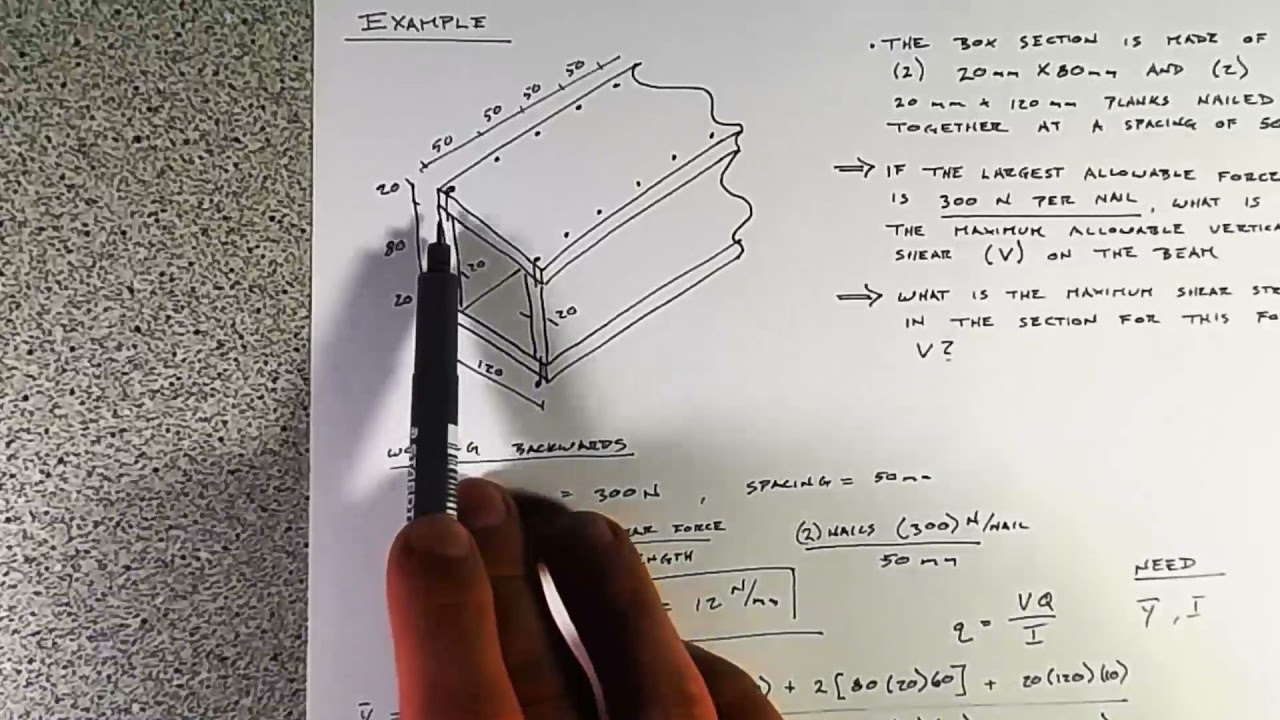 EXAMPLE
50
50
50
50
20
80
20
20
20
120
• THE BOX SECTION IS MADE OF
(2) 20mm X 80mm AND (2)
20 mm x 120 mm PLANKS NAILED
TOGETHER AT A SPACING OF
⇒ IF THE LARGEST ALLOWABLE FORCE
IS 300 N PER NAIL, WHAT IS
THE MAXIMUM ALLOWABLE
SHEAR (V) ON THE BEAM
⇒ WHAT IS THE MAXIMUM SHEAR
IN THE SECTION FOR THIS
V?
BACKWARDS
= 300 N , SPACING = 50mm
FORCE
(2) NAILS (300) N/NAIL
50 mm
= 12 N/mm
q = VQ
I
NEED
Y̅, I
) + 2[80(20)60] + 20(120)(10)
Y̅ =